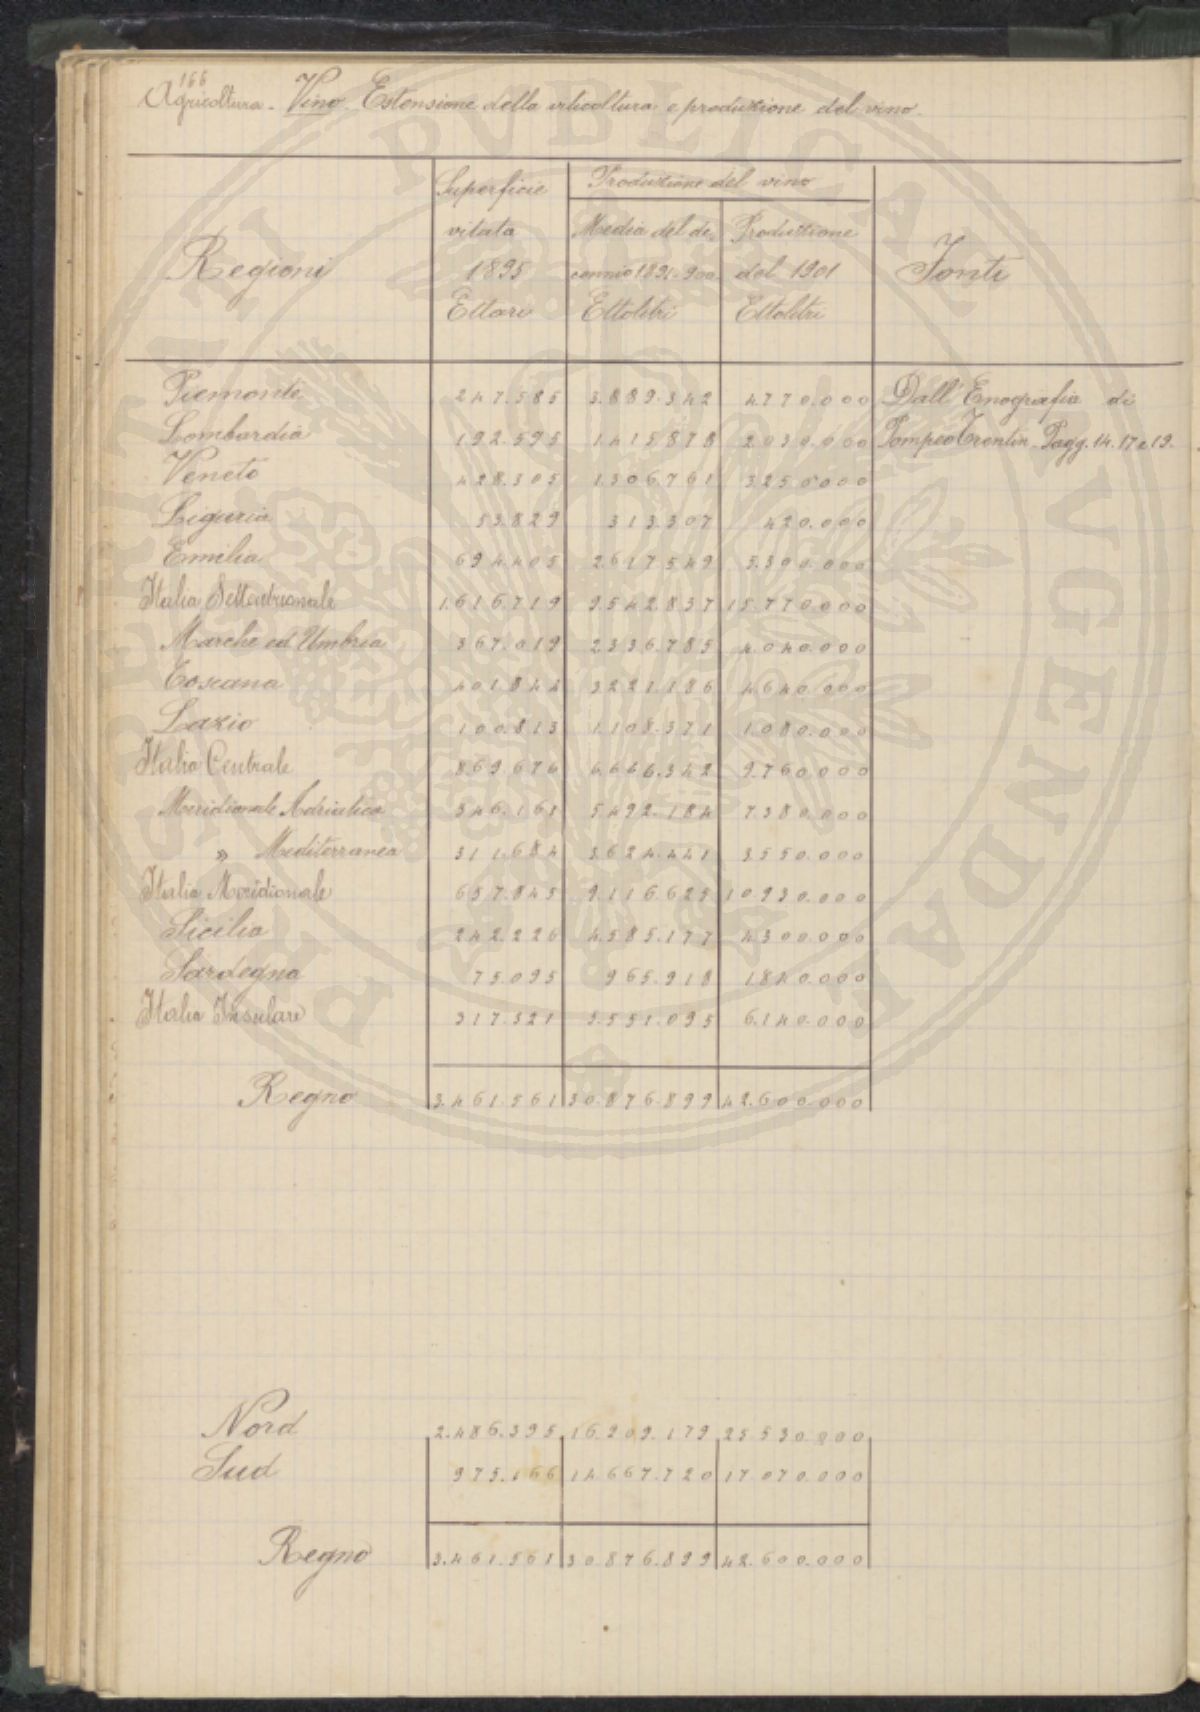 166
Agricoltura - Vino. Estensione della viticoltura e produzione del vino.
Regioni
Superficie
vitata
1895
Ettari
Produzione del vino
Media del de
cennio 1891-900
Ettolitri
Produzione
del 1901
Ettolitri
Fonti
Piemonte 247.585 3.889.342 4.770.000 Dall'Enografia di
Lombardia 192.595 1.415.878 2.030.000 Pompeo Trentin - Pagg. 14. 17 e 19.
Veneto 428.305 1.306.761 3.250.000
Liguria 53.829 313.307 420.000
Emilia 694.405 2.617.549 5.300.000
Italia Settentrionale 1.616.719 9.542.837 15.770.000
Marche ed Umbria 367.019 2.336.785 4.040.000
Toscana 401.844 3.221.186 4.640.000
Lazio 100.813 1.108.371 1.080.000
Italia Centrale 869.676 6.666.342 9.760.000
Meridionale Adriatica 346.161 5.492.184 7.380.000
» Mediterranea 311.684 3.624.441 3.550.000
Italia Meridionale 657.845 9.116.625 10.930.000
Sicilia 242.226 4.585.177 4.300.000
Sardegna 75.095 965.918 1.840.000
Italia Insulare 317.321 5.551.095 6.140.000
Regno 3.461.561 30.876.899 42.600.000
Nord 2.486.395 16.209.179 25.530.000
Sud 975.166 14.667.720 17.070.000
Regno 3.461.561 30.876.899 42.600.000